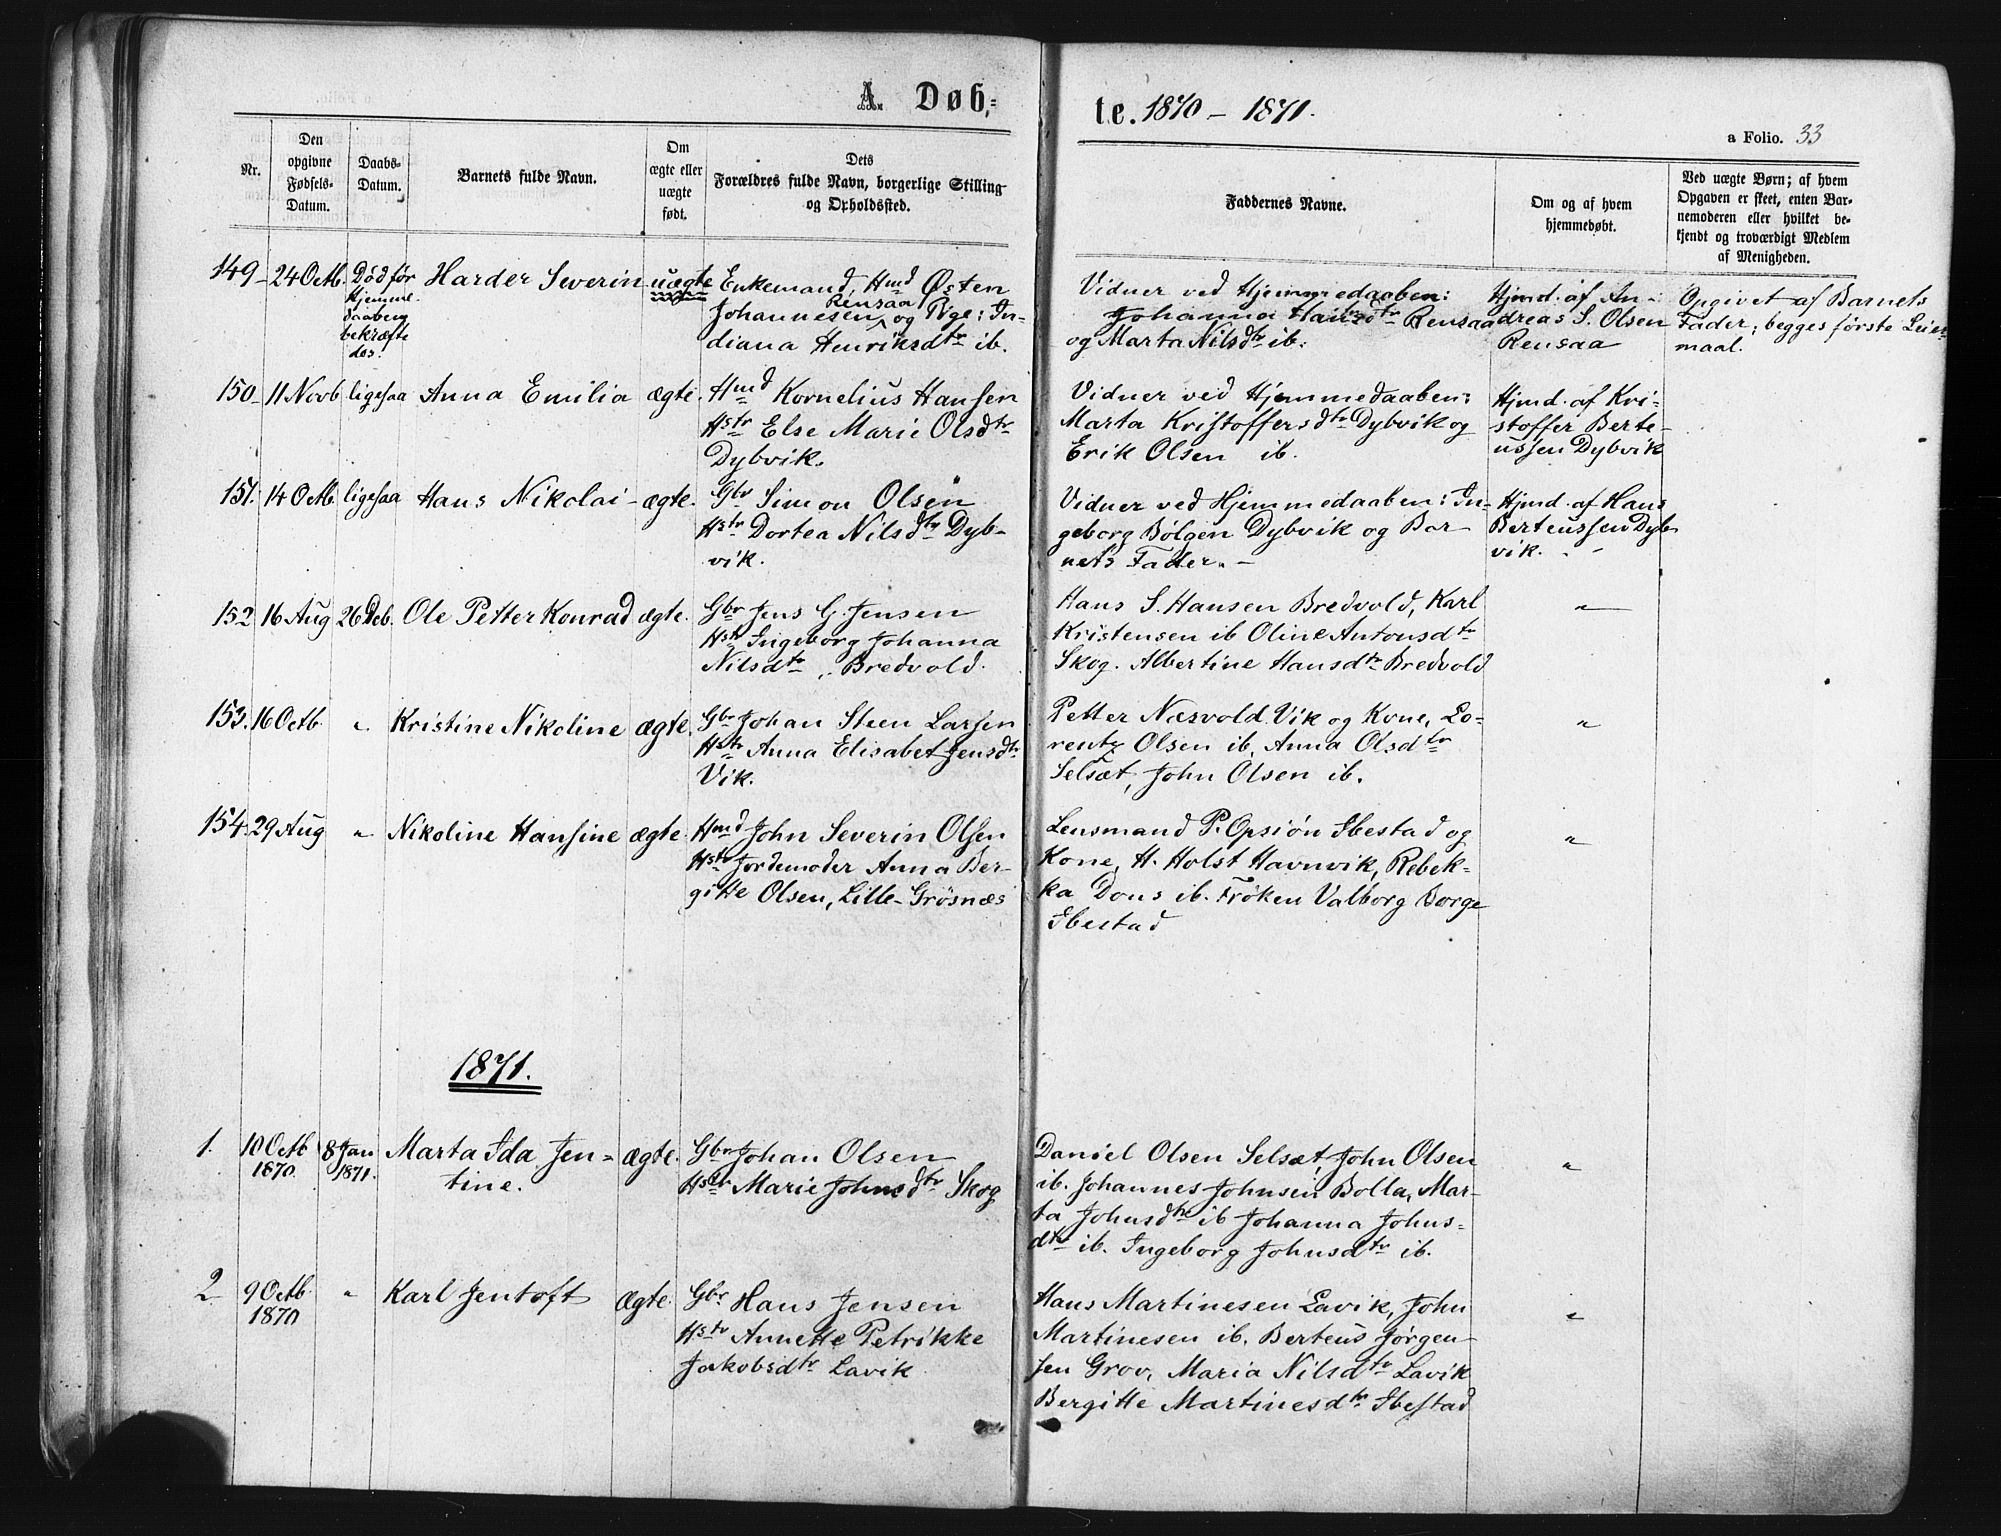 A. Døb,=
te. 1870 – 1871.
a Folio. 33
Nr.
Den
opgivne
Fødsels-
Datum.
Daabs-
Datum.
Barnets fulde Navn.
Om
ægte eller
uægte
født.
Dets
Forældres fulde Navn, borgerlige Stilling
og Opholdssted.
Faddernes Navne.
Om og af hvem
hjemmedøbt.
Ved uægte Børn; af hvem
Opgaven er skeet, enten Bar-
nemoderen eller hvilket be-
kjendt og troværdigt Medlem
af Menigheden.
149 – 24 Octb. Død før
Hjemme-
daaben
bekræfte
des.
Harder Severin uægte
Enkemand, Hmd Østen
Rensaa
Johannesen og Pige: In-
diana Henriksdtr ib.
Vidner ved Hjemmedaaben:
Johanna Hansdtr Rensaa
og Marta Nilsdtr ib.
Hjmd. af An-
dreas S. Olsen
Rensaa
Opgivet af Barnets
Fader; begges første Leier-
maal.
150 – 11 Novb ligesaa Anna Emilia ægte.
Hmd Kornelius Hansen
Hstr Else Marie Olsdtr
Dybvik.
Vidner ved Hjemmedaaben:
Marta Kristoffersdtr Dybvik og
Erik Olsen ib.
Hjmd. af Kri-
stoffer Berte-
ussen Dybvik
151. 14 Octb ligesaa Hans Nikolai – ægte.
Gbr Simon Olsen
Hstr Dortea Nilsdtr Dyb-
vik.
Vidner ved Hjemmedaaben: In-
geborg Bølgen Dybvik og Bar-
nets Fader. –
Hjmd. af Hans
Berteussen Dyb-
vik.
152 16 Aug 26 Deb. Ole Petter Konrad ægte.
Gbr Jens G. Jensen
Hstr Ingeborg Johanna
Nilsdtr „ Bredvold.
Hans S. Hansen Bredvold, Karl
Kristensen ib Oline Antonsdtr
Skog. Albertine Hansdtr Bredvold
"
153. 16 Octb " Kristine Nikoline ægte.
Gbr Johan Steen Larsen
Hstr Anna Elisabet Jensdtr
Vik.
Petter Næsvold Vik og Kone, Lo-
rentz Olsen ib, Anna Olsdtr
Selsæt, John Olsen ib.
"
154. 29 Aug " Nikoline Hansine ægte.
Hmd John Severin Olsen
Hstr Jordemoder Anna Ber-
gitte Olsen, Lille-Grøsnæs
Lensmand P. Opsiøn Ibestad og
Kone, H. Holst Havnvik, Rebek-
ka Dons ib. Frøken Valborg Borge
Ibestad
"
1871.
1. 10 Octb 8 Jan Marta Ida Jen- ægte.
1870. 1871. tine.
Gbr Johan Olsen
Hstr Marie Johnsdtr Skog
Daniel Olsen Selsæt, John Olsen
ib. Johannes Johnsen Bolla, Mar-
ta Johnsdtr ib Johanna Johns-
dtr ib. Ingeborg Johnsdtr ib.
"
2 9 Octb. " Karl Jentoft ægte.
1870
Gbr Hans Jensen
Hstr Annette Petrikke
Jakobsdtr Lavik
Hans Martinesen Lavik, John
Martinesen ib. Berteus Jørgen-
sen Grov, Maria Nilsdtr Lavik
Bergitte Martinesdtr Ibestad
"